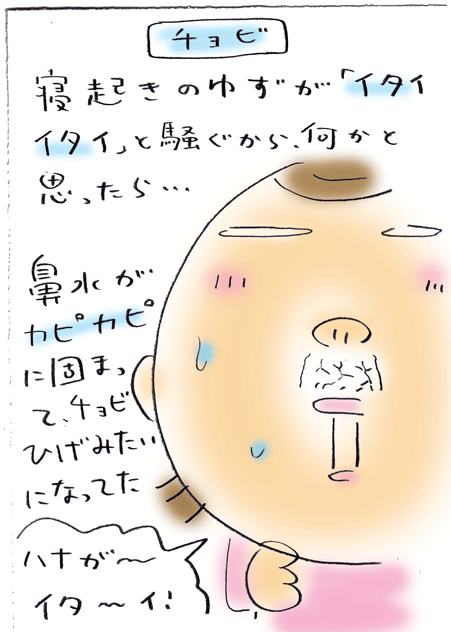 チョビ
寝起きのゆずが「イタイ
イタイ」と騒ぐから、何かと
思ったら…
鼻水が
カピカピ
に固まっ
て、チョビ
ひげみたい
になってた
ハナが〜
イタ〜イ!